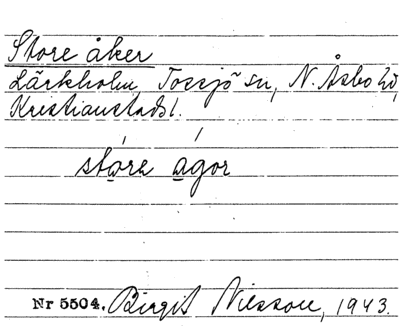 Store åker
Lärkholm, Tossjö sn, N. Åsbo hd,
Kristianstads l.
stǻre ágor
Nr 5504. Birgit Nilsson, 1943.